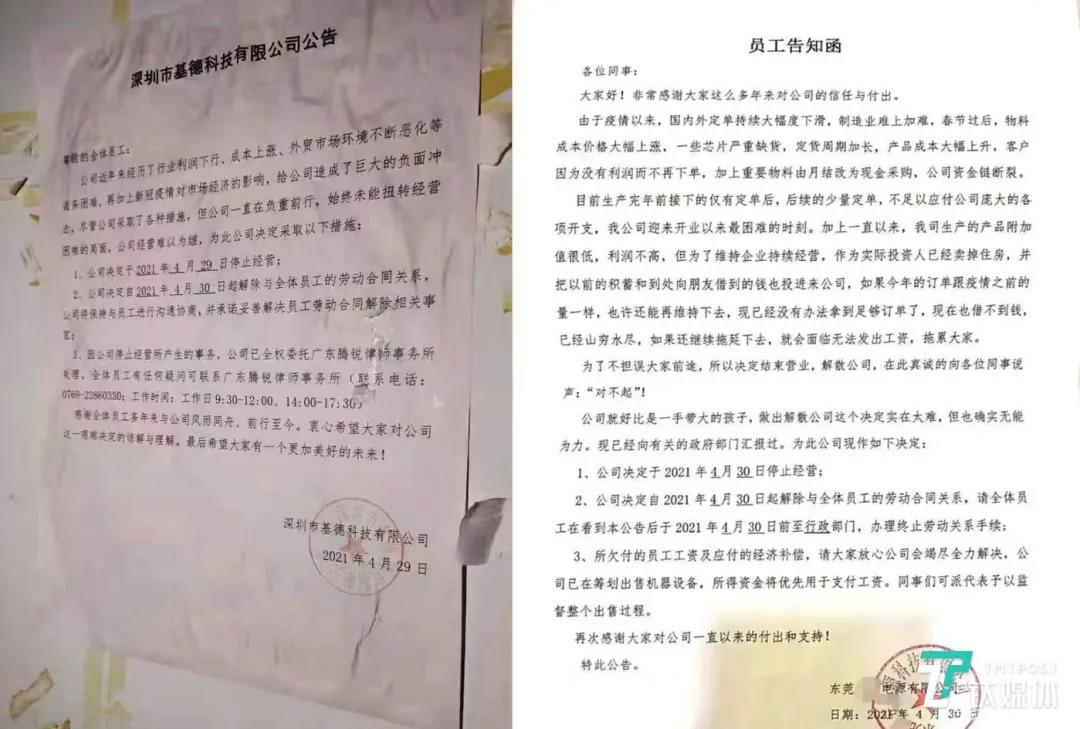 深圳市基德科技有限公司公告
尊敬的全体员工：
公司近年来经历了行业利润下行、成本上涨、外贸市场环境不断恶化等
诸多困难，再加上新冠疫情对市场经济的影响，给公司造成了巨大的负面冲
击，尽管公司采取了各种措施，但公司一直在负重前行，始终未能扭转经营
困难的局面，公司经营难以为继，为此公司决定采取以下措施：
1、公司决定于2021年4月29日停止经营；
2、公司决定自2021年4月30日起解除与全体员工的劳动合同关系，
公司将保持与员工进行沟通协商，并承诺妥善解决员工劳动合同解除相关事
宜；
3、因公司停止经营所产生的事务，公司已全权委托广东腾锐律师事务所
处理。全体员工有任何疑问可联系广东腾锐律师事务所（联系电话：
0769-22860330；工作时间：工作日9:30-12:00、14:00-17:30）
感谢全体员工多年来与公司风雨同舟、前行至今。衷心希望大家对公司
这一艰难决定的谅解与理解。最后希望大家有一个更加美好的未来！
深圳市基德科技有限公司
2021年4月29日
员工告知函
各位同事：
大家好！非常感谢大家这么多年来对公司的信任与付出。
由于疫情以来，国内外定单持续大幅度下滑，制造业难上加难，春节过后，物料
成本价格大幅上涨，一些芯片严重缺货，定货周期加长，产品成本大幅上升，客户
因为没有利润而不再下单，加上重要物料由月结改为现金采购，公司资金链断裂。
目前生产完年前接下的仅有定单后，后续的少量定单，不足以应付公司庞大的各
项开支，我公司迎来开业以来最困难的时刻。加上一直以来，我司生产的产品附加
值很低，利润不高，但为了维持企业持续经营，作为实际投资人已经卖掉住房，并
把以前的积蓄和到处向朋友借到的钱也投进来公司，如果今年的订单跟疫情之前的
量一样，也许还能再维持下去，现已经没有办法拿到足够订单了，现在也借不到钱，
已经山穷水尽，如果还继续拖延下去，就会面临无法发出工资，拖累大家。
为了不担误大家前途，所以决定结束营业，解散公司，在此真诚的向各位同事说
声：“对不起”！
公司就好比是一手带大的孩子，做出解散公司这个决定实在太难，但也确实无能
为力。现已经向有关的政府部门汇报过。为此公司现作如下决定：
1、公司决定于2021年4月30日停止经营；
2、公司决定自2021年4月30日起解除与全体员工的劳动合同关系，请全体员
工在看到本公告后于2021年4月30日前至行政部门，办理终止劳动关系手续；
3、所欠付的员工工资及应付的经济补偿，请大家放心公司会竭尽全力解决，公
司已在筹划出售机器设备，所得资金将优先用于支付工资。同事们可派代表予以监
督整个出售过程。
再次感谢大家对公司一直以来的付出和支持！
特此公告。
东莞 电源有限公司
日期：2021年4月30日
TMTPOST
钛媒体